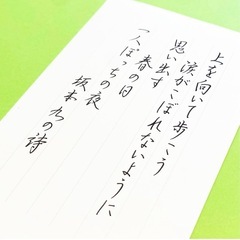 上を向いて歩こう
涙がこぼれないように
思い出す
春の日
一人ぼっちの夜
坂本九の詩